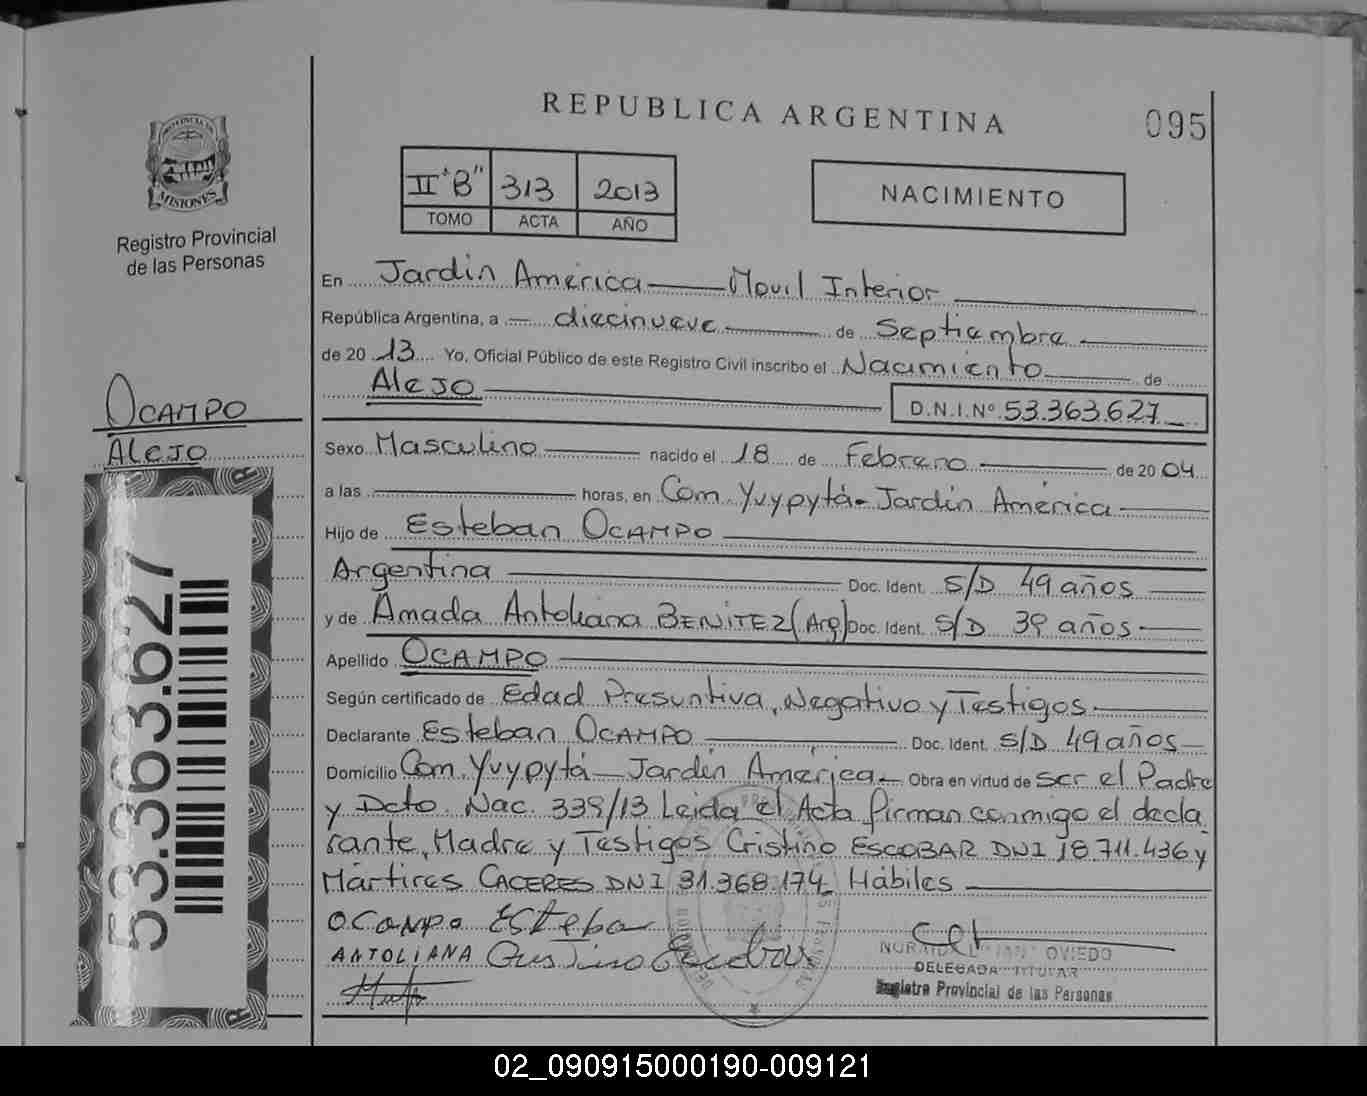 REPUBLICA ARGENTINA
095
PROVINCIA DE MISIONES
Registro Provincial
de las Personas
II "B" 313 2013
TOMO ACTA AÑO
NACIMIENTO
En Jardín América — Movil Interior
República Argentina, a — diecinueve de Septiembre
de 20 13 Yo, Oficial Público de este Registro Civil inscribo el Nacimiento de
Alejo D.N.I.Nº 53.363.627
OCAMPO
Alejo
Sexo Masculino nacido el 18 de Febrero de 20 04
a las — horas, en Com. Yvypytá - Jardín América
Hijo de Esteban OCAMPO
Argentina Doc. Ident. S/D 49 años
y de Amada Antoliana BENITEZ (Arg) Doc. Ident. S/D 39 años
Apellido OCAMPO
Según certificado de Edad Presuntiva, Negativo y Testigos
Declarante Esteban OCAMPO Doc. Ident. S/D 49 años
Domicilio Com. Yvypytá — Jardín América Obra en virtud de ser el Padre
y Dcto. Nac. 339/13 Leida el Acta firman conmigo el decla
rante, Madre y Testigos Cristino ESCOBAR DNI 18.711.436 y
Mártires CACERES DNI 31.368.174 Hábiles
OCAMPO Esteba
ANTOLIANA
OVIEDO
DELEGADA TITULAR
Registro Provincial de las Personas
53.363.627
02_090915000190-009121